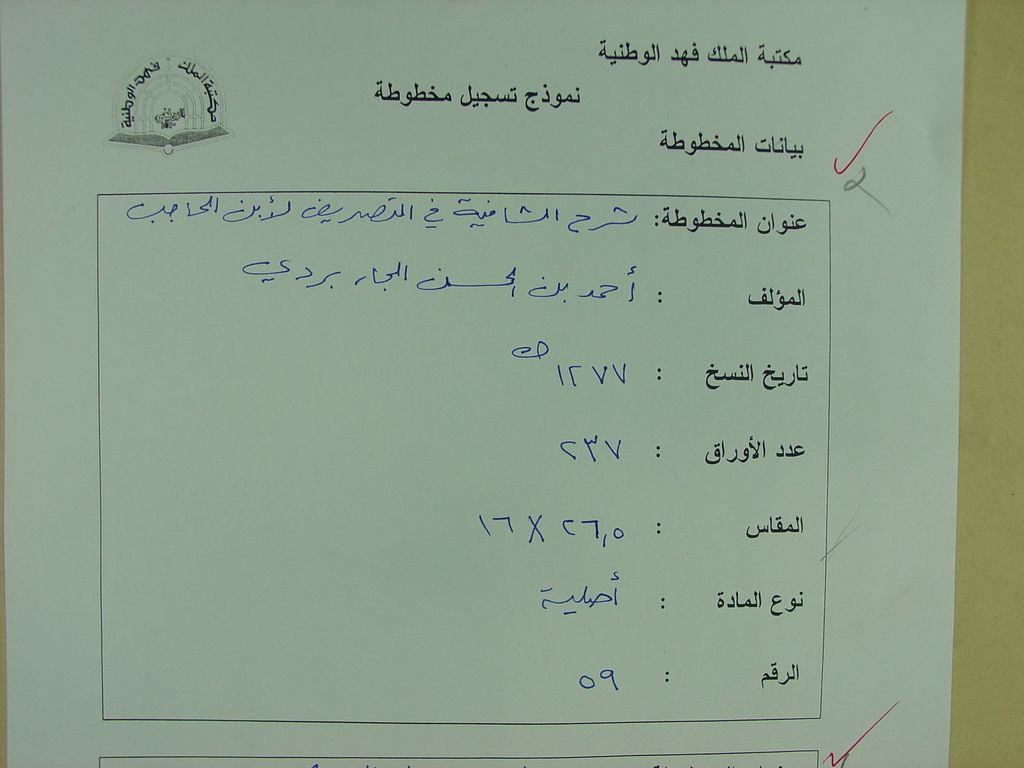 مكتبة الملك فهد الوطنية
مكتبة الملك فهد الوطنية
نموذج تسجيل مخطوطة
بيانات المخطوطة
عنوان المخطوطة: شرح الشافية في التصريف لأبن الحاجب
المؤلف : أحمد بن الحسن الجاربردي
تاريخ النسخ : ١٢٧٧هـ
عدد الأوراق : ٢٣٧
المقاس : ٢٦,٥ X ١٦
نوع المادة : أصلية
الرقم : ٥٩